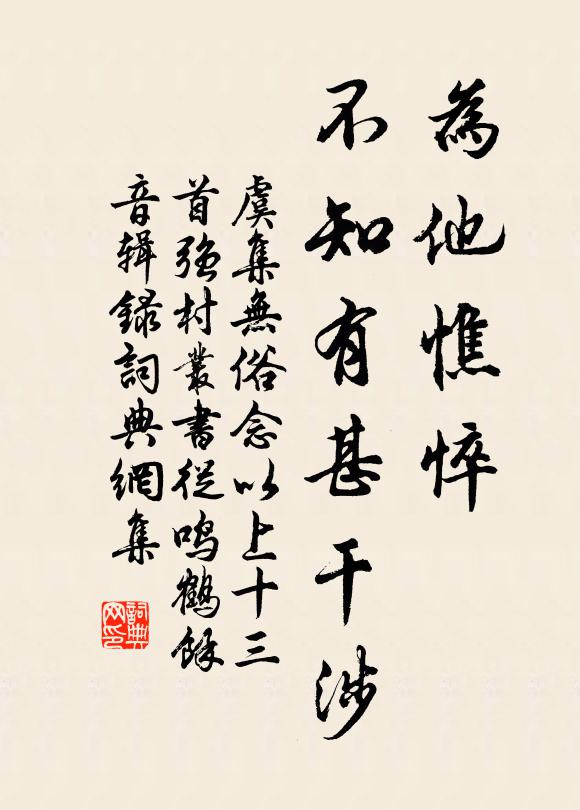 為他憔悴
不知有甚干涉
虞集無俗念以上十三
首強村叢書從鳴鶴餘
音輯錄詞典網集
詞典
网印